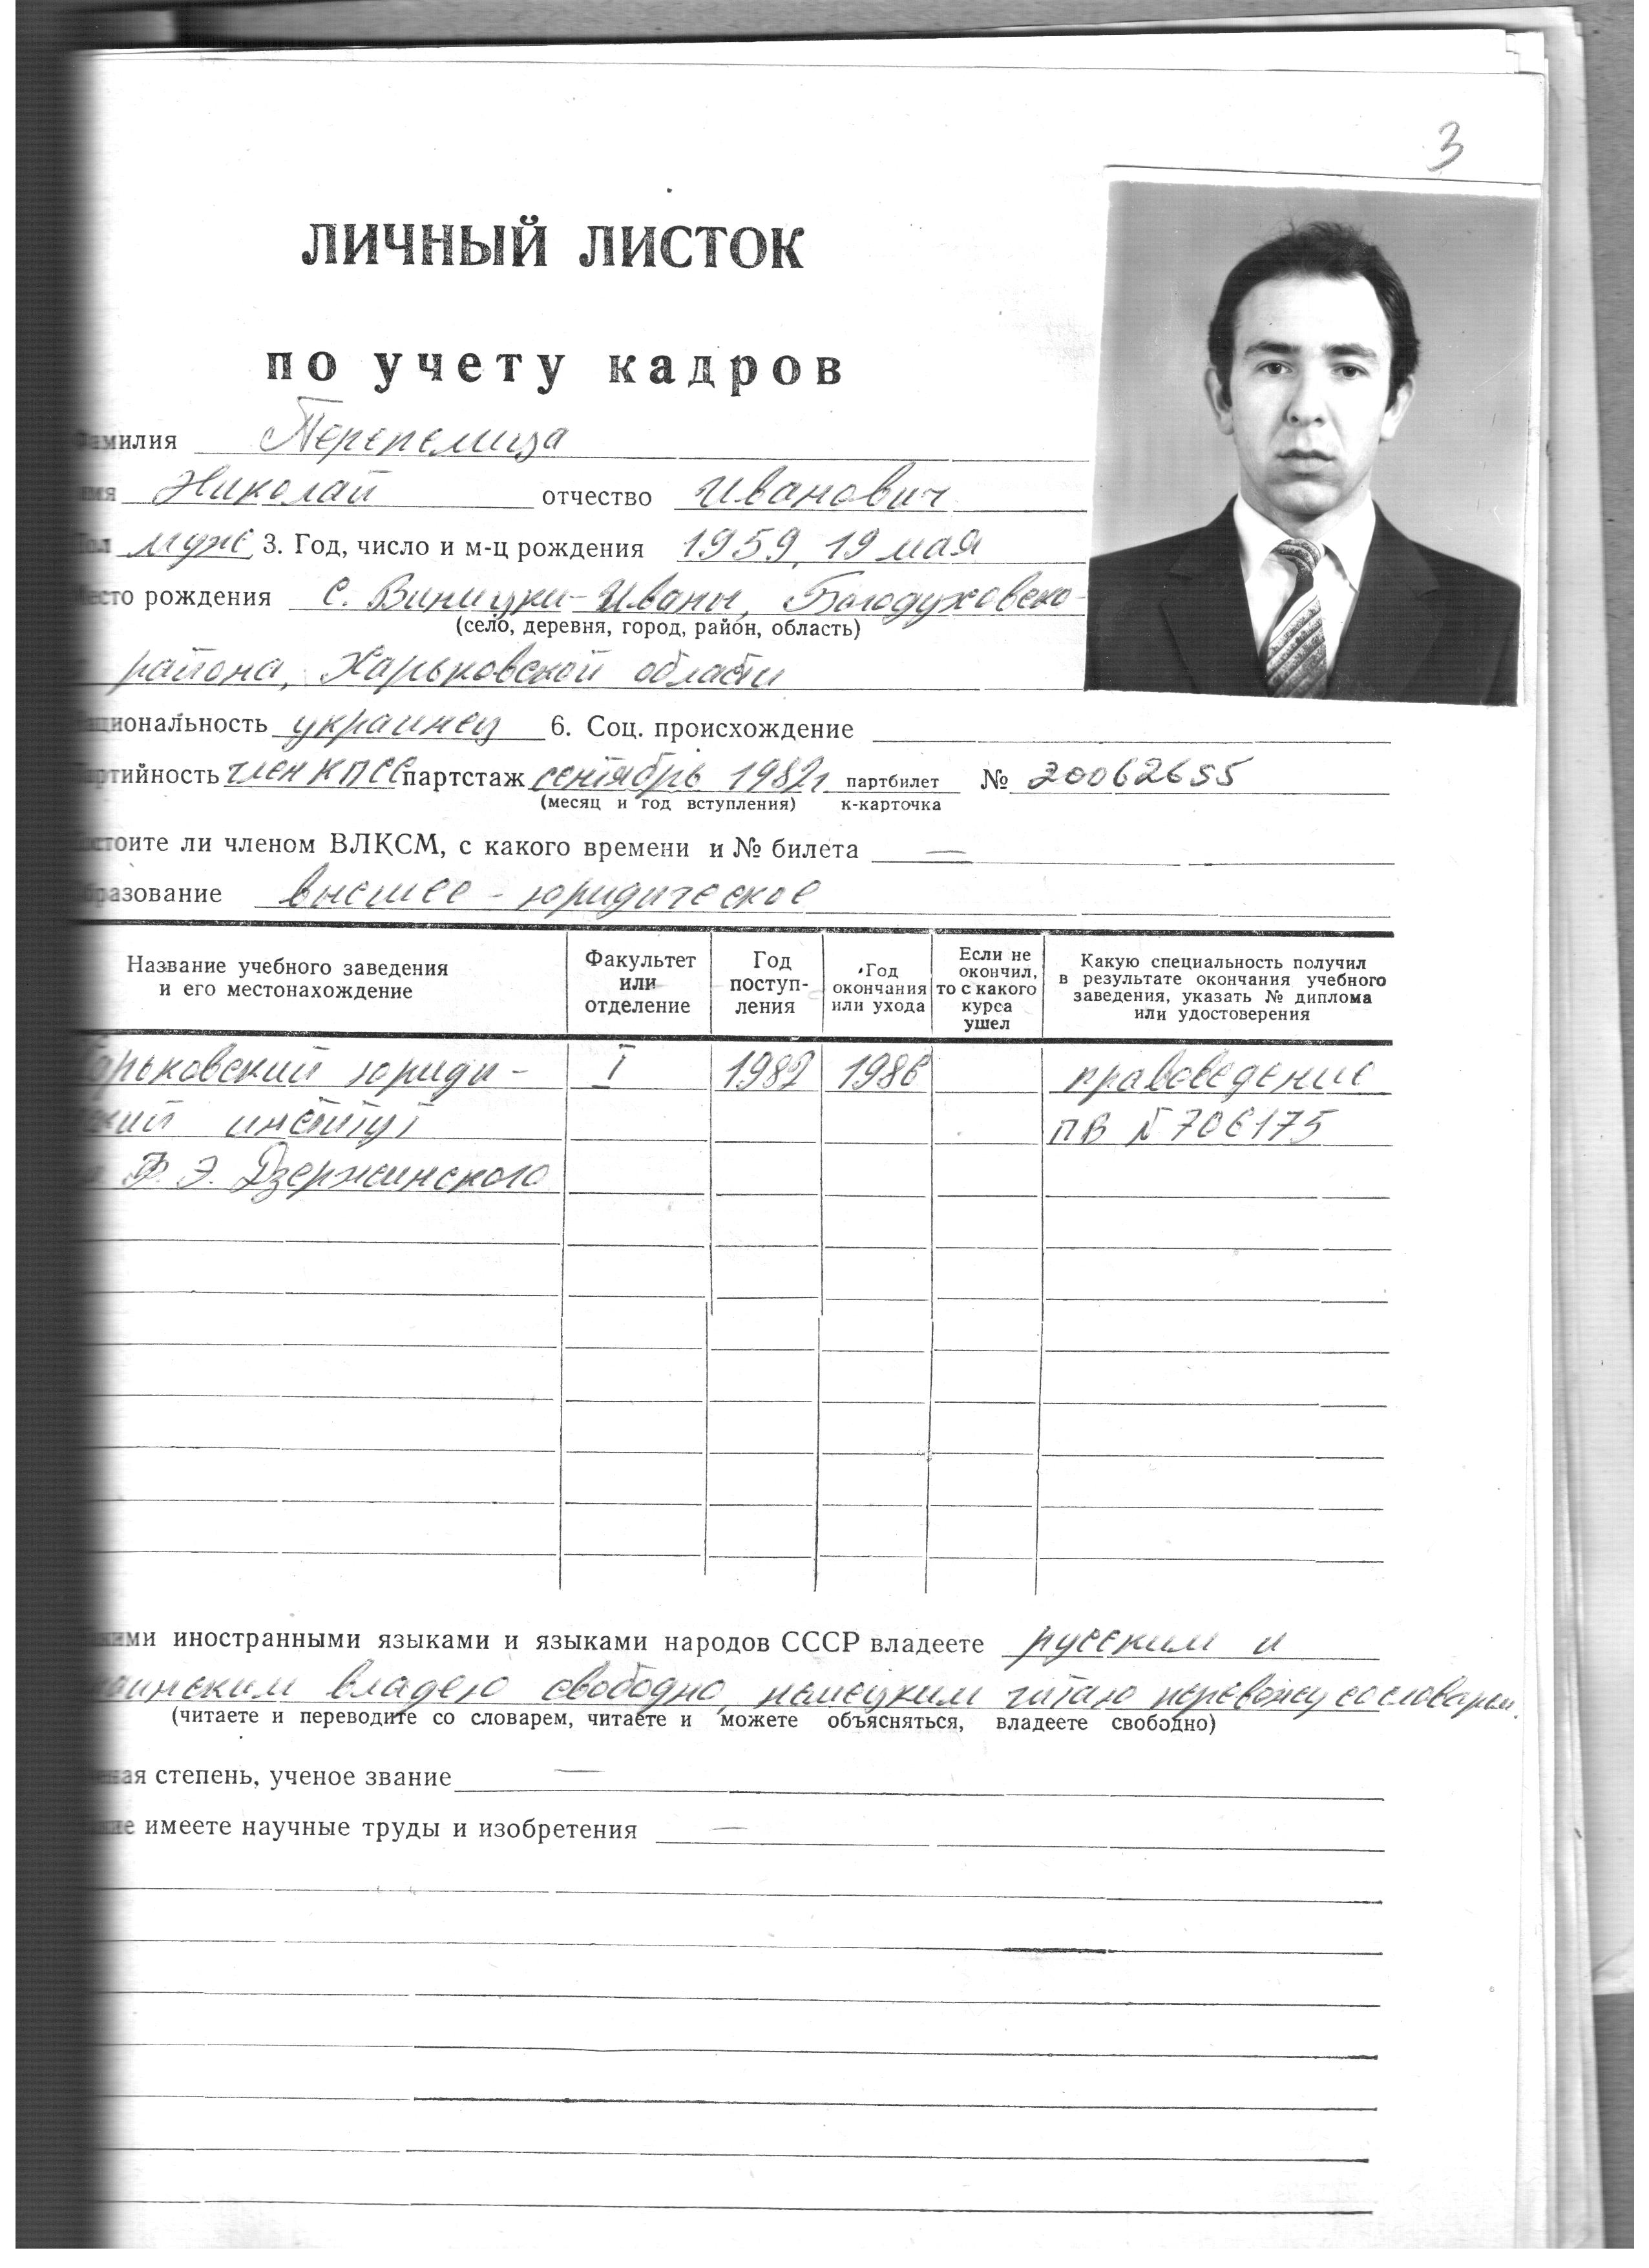 3
ЛИЧНЫЙ ЛИСТОК
по учету кадров
Фамилия Перепелица
имя Николай отчество Иванович
Пол муж. 3. Год, число и м-ц рождения 1959, 19 мая
Место рождения с. Винницки-Иваны, Богодуховско-
(село, деревня, город, район, область)
района, Харьковской области
Национальность украинец 6. Соц. происхождение
Партийность член КПСС партстаж сентябрь 1982г партбилет № 20062655
(месяц и год вступления) к-карточка
Состоите ли членом ВЛКСМ, с какого времени и № билета —
Образование высшее - юридическое
Название учебного заведения и его местонахождение
Факультет или отделение
Год поступ- ления
Год окончания или ухода
Если не окончил, то с какого курса ушел
Какую специальность получил в результате окончания учебного заведения, указать № диплома или удостоверения
Харьковский юриди- I 1982 1986 правоведение
ский институт ПВ №706175
Ф. Э. Дзержинского
Какими иностранными языками и языками народов СССР владеете русским и
аинским владею свободно, немецким читаю перевожу со словарем.
(читаете и переводите со словарем, читаете и можете объясняться, владеете свободно)
ученая степень, ученое звание —
Какие имеете научные труды и изобретения —